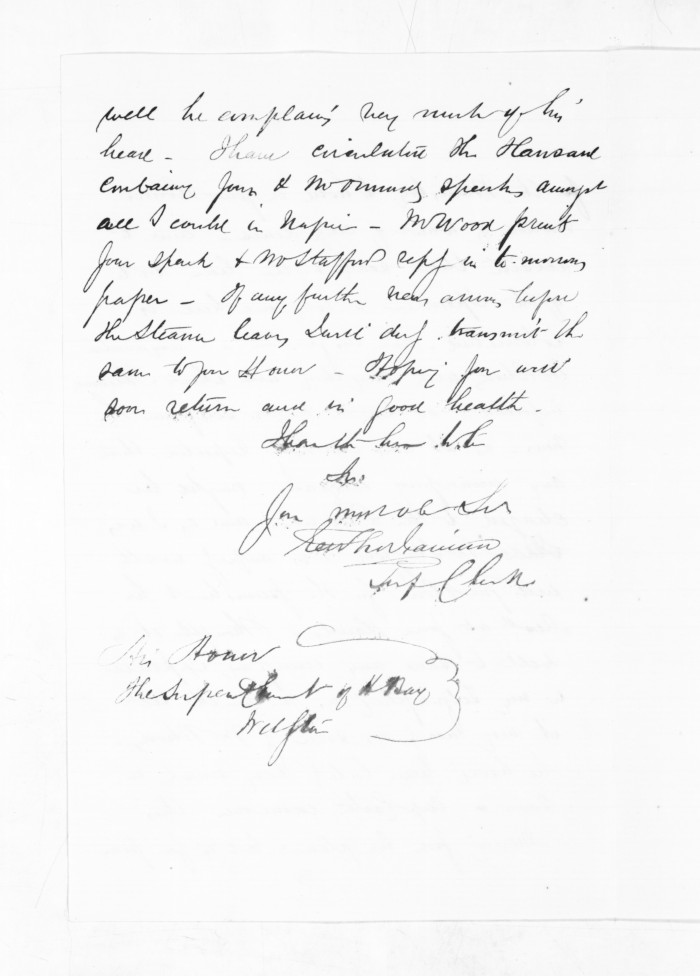 well he complains very much of his
head - I have circulated the Hansard
containing your & Mr Ormond's speeches amongst
all I could in Napier - Mr Wood prints
your speech & Mr Stafford's reply in to-morrows
paper - If any further news arrives before
the Steamer leaves I will duly transmit the
same to your Honor - Hoping you will
soon return and in good health -
I have the honor to be
Sir
Your most ob Svt
Clerk
His Honor
The Superintendent of H Bay
Wellington